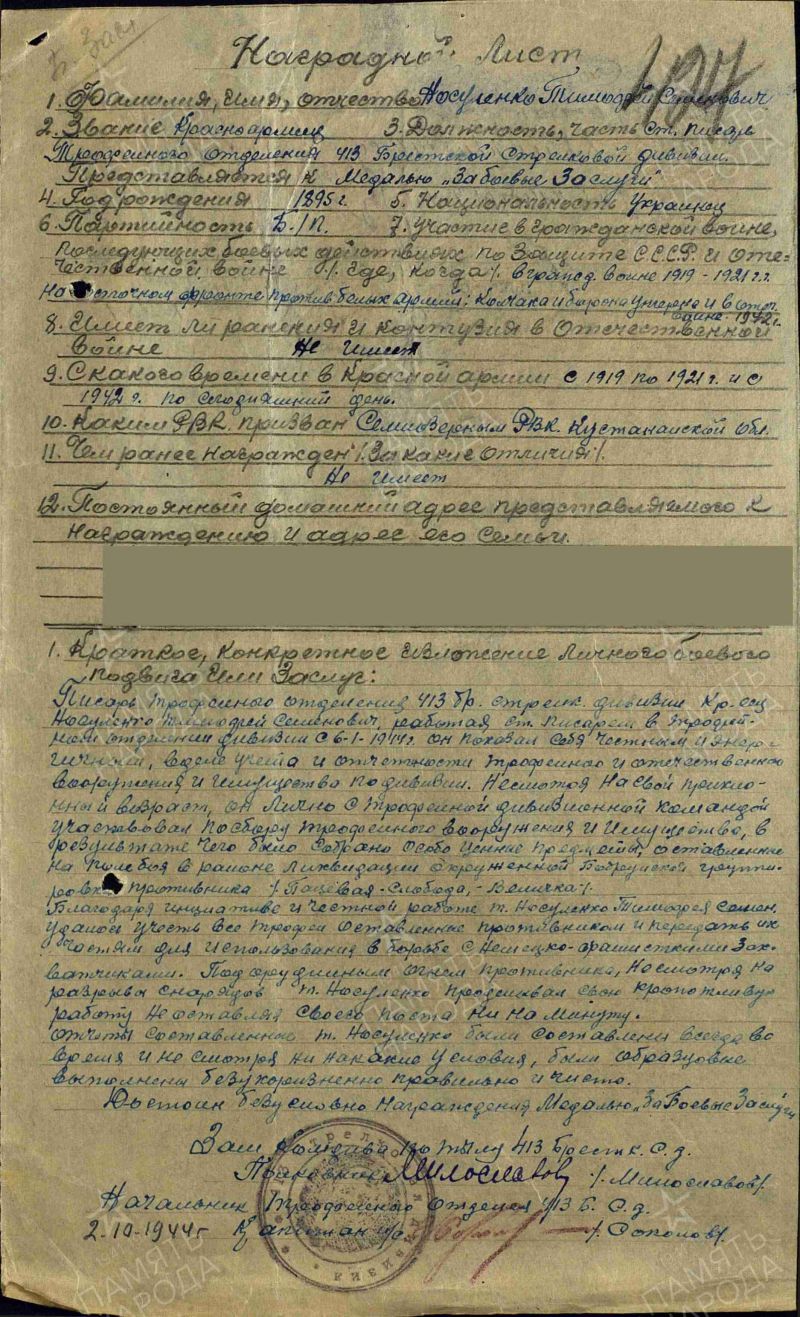 Наградной Лист
1. Фамилия, имя, отчество Носуленко Тимофей Семенович
2. Звание Красноармеец 3. Должность, часть Ст. писарь
Трофейного отделения 413 Брестской Стрелковой дивизии.
Представляется к Медалью „За боевые Заслуги"
4. Год рождения 1895 г. 5. Национальность Украинец
6. Партийность Б./П. 7. Участие в гражданской войне,
последующих боевых действиях по защите С.С.С.Р. и оте-
чественной войне /. Где, когда /. в гражд. войне 1919 - 1921 г.г.
На Восточном фронте против белых армий: Колчака и барона Унгерна и в отеч.
войне 1942 г.
8. Имеет ли ранения и контузия в Отечественной
войне Не имеет
9. С какого времени в Красной армии с 1919 по 1921 г. и с
1942 г. по сегодняшний день.
10. Каким РВК. призван Семиозерным РВК. Кустанайской обл.
11. Чем ранее награжден /. За какие отличия /.
Не имеет
12. Постоянный домашний адрес представляемого к
награждению и адрес его семьи.
1. Краткое, конкретное изложение личного боевого
подвига или заслуг:
Писарь трофейного отделения 413 бр. стрелк. дивизии Кр-еец
Носуленко Тимофей Семенович, работая ст. писарем в трофей-
ном отделении дивизии с 6-1-1944 г. он показал себя честным и энер-
гичным, в деле учета и отчетности трофейного и отечественного
вооружения и имущества по дивизии. Несмотря на свой прекло-
нный возраст, он лично с трофейной дивизионной командой
участвовал по сбору трофейного вооружения и имущества, в
результате чего было собрано особо ценные предметы, оставленные
на поле боя в районе ликвидации окруженной Бобруйской группи-
ровки противника /. Слобода, - Величка /.
Благодаря инициативе и честной работе т. Носуленко Тимофея Семен.
удалось учесть все трофеи оставленные противником и передать их
частям для использования в борьбе с немецко-фашистскими зах-
ватчиками. Под орудийным огнем противника, несмотря на
разрывы снарядов т. Носуленко продолжал свою кропотливую
работу не оставляя своего поста ни на минуту.
Отчеты составленные т. Носуленко были составлены всегда во
время и не смотря ни на какие условия, были образцово
выполнены безукоризненно правильно и чисто.
Достоин безусловно награждения Медалью „За Боевые Заслуги
Зам Комдива по тылу 413 Брестк. С. д.
Полковник Милославов /. Милославов /.
Начальник Трофейного отделен 413 Б. С. д.
2.10-1944 г Капитан /. Соколов /.
ПАМЯТЬ НАРОДА